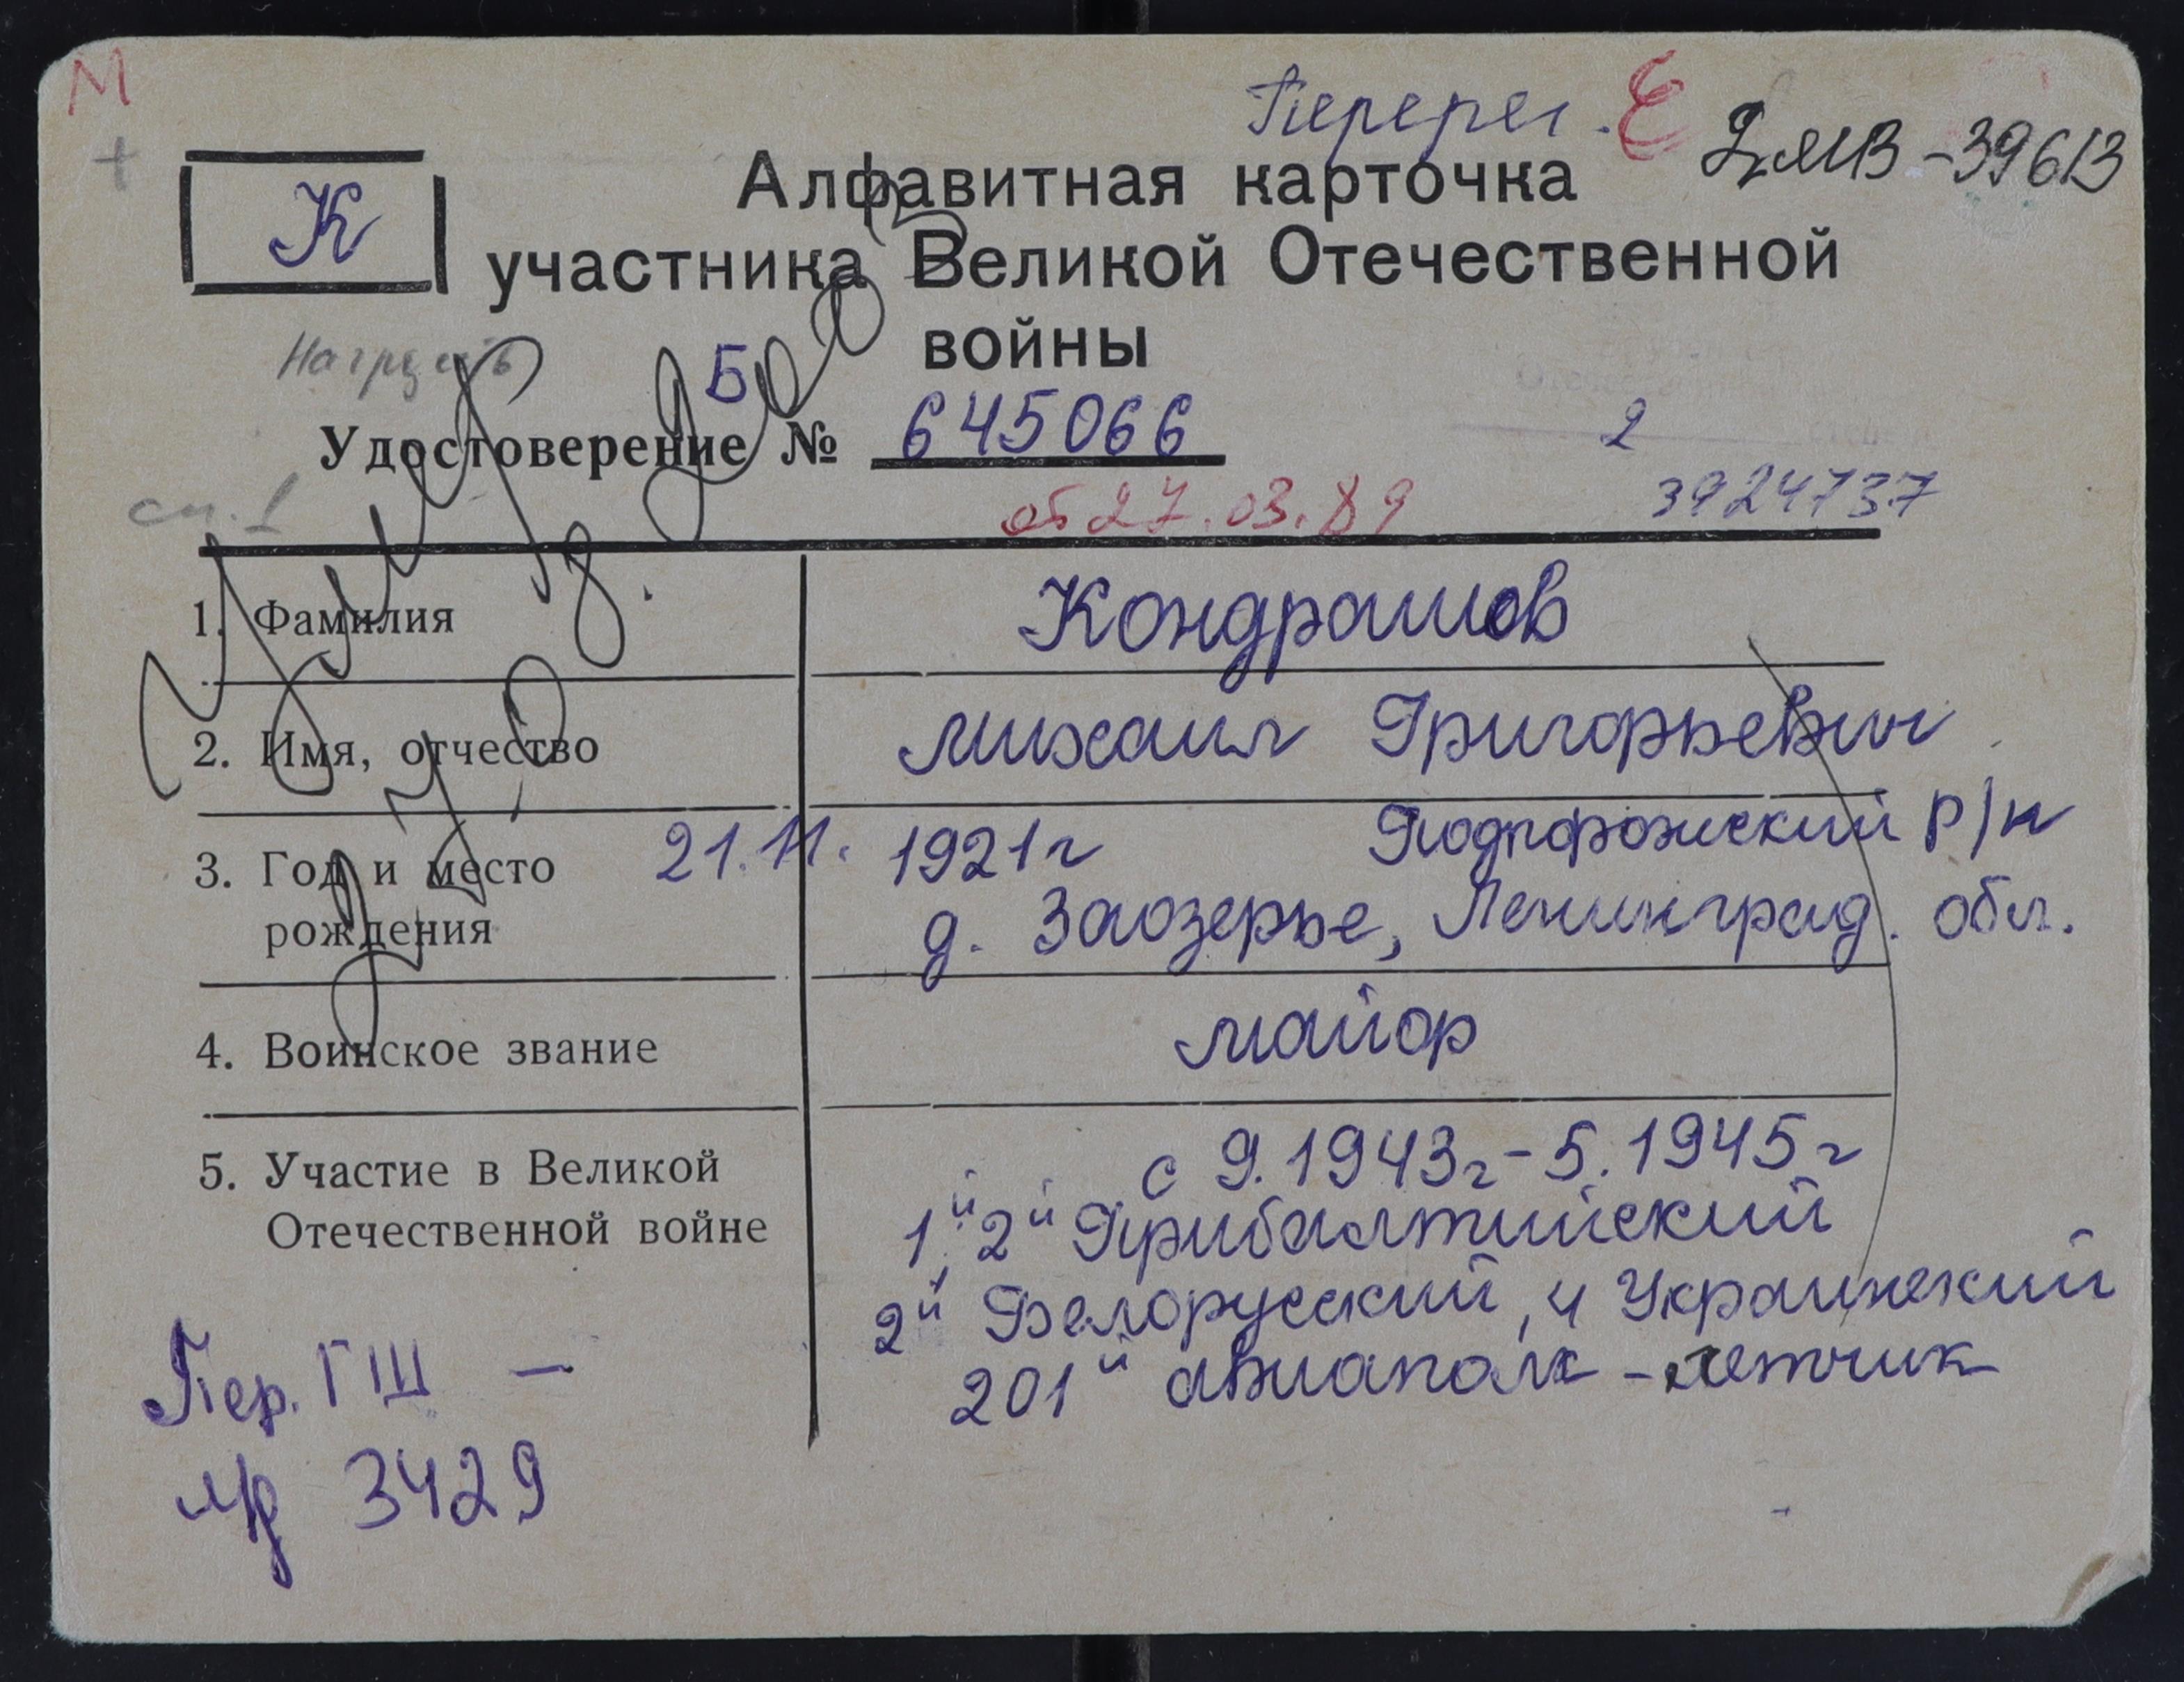 М
Перерег. Е
ДМВ - 39613
Алфавитная карточка
К
участника Великой Отечественной
войны
Б
Удостоверение № 645066
2
3924737
от 27.03.89
1. Фамилия Кондрашов
2. Имя, отчество Михаил Григорьевич
3. Год и место рождения 21.11. 1921г Подпорожский р/н
д. Заозерье, Ленинград. обл.
4. Воинское звание майор
5. Участие в Великой Отечественной войне с 9.1943г - 5.1945г
1й, 2й Прибалтийский
2й Белорусский, 4 Украинский
201й авиаполк - летчик
Пер. ГШ -
3429